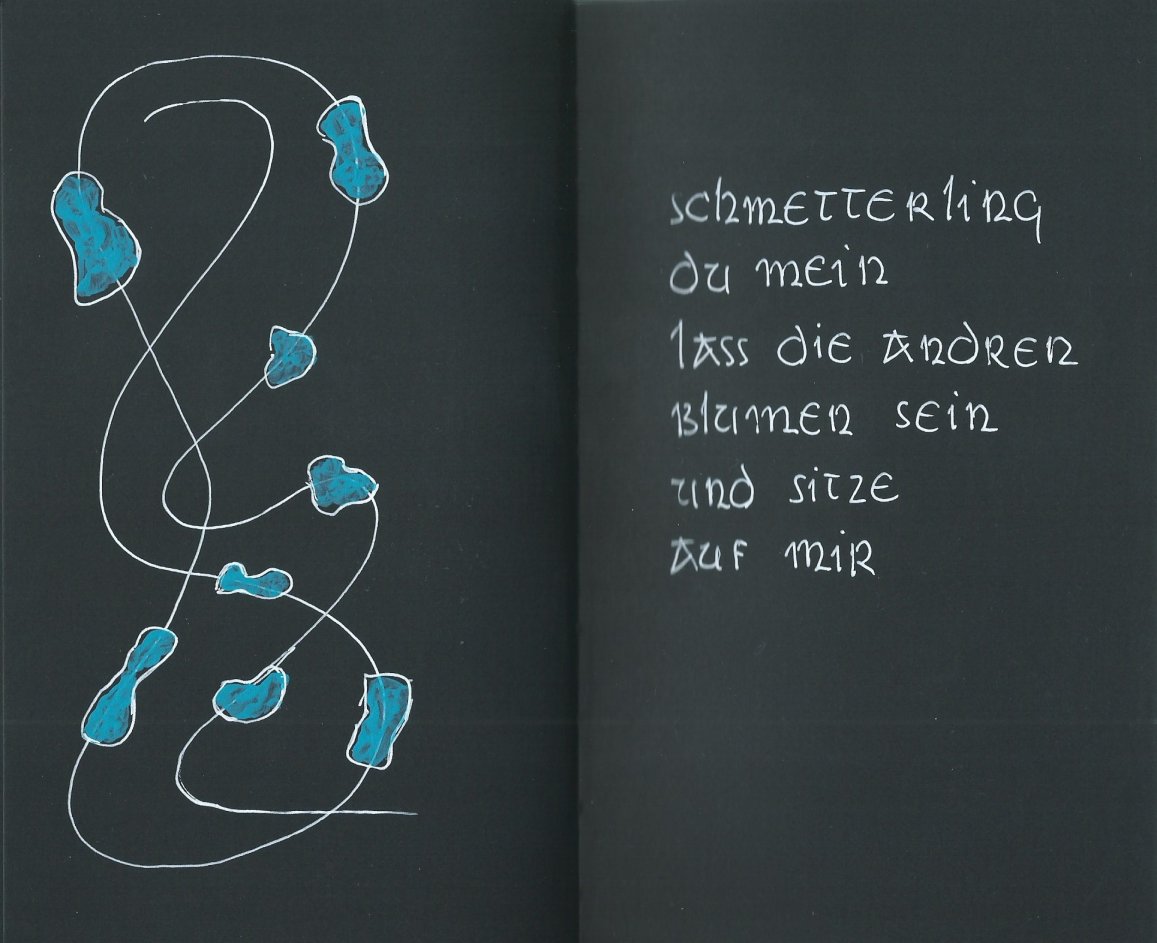 schmetterling
du mein
lass die andren
blumen sein
und sitze
auf mir